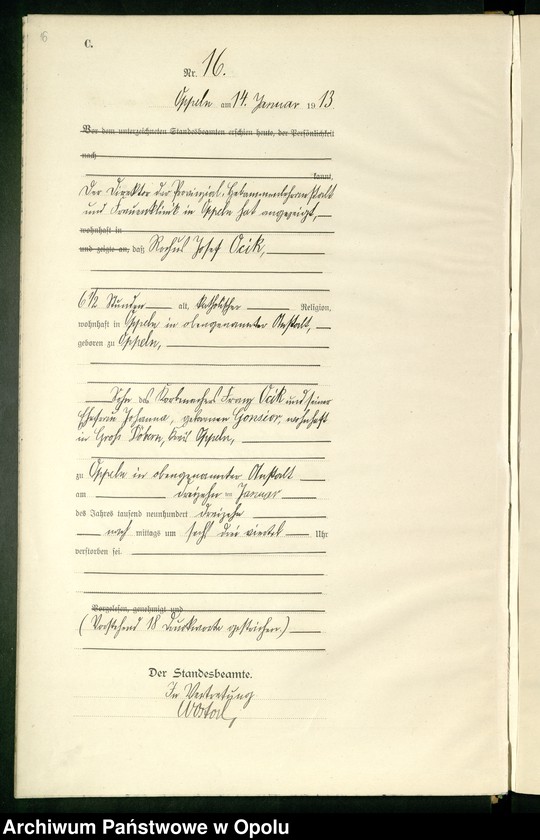 6
C.
Nr. 16.
Oppeln am 14. Januar 1913.
Vor dem unterzeichneten Standesbeamten erschien heute, der Persönlichkeit
nach
kannt,
Der Direktor der Provinzial-Hebammenlehranstalt
und Frauenklinik in Oppeln hat angezeigt,
wohnhaft in
und zeigte an, daß Rochus Josef Ocik,
6 1/2 Stunden alt, katholischer Religion,
wohnhaft in Oppeln in obengenannter Anstalt,
geboren zu Oppeln,
Sohn des Korbmachers Franz Ocik und seiner
Ehefrau Johanna, geborenen Gonsior, wohnhaft
in Groß Döbern, Kreis Oppeln,
zu Oppeln in obengenannter Anstalt
am dreizehnten Januar
des Jahres tausend neunhundert dreizehn
nachmittags um sechs drei viertel Uhr
verstorben sei.
Vorgelesen, genehmigt und
(Vorstehend 18 Druckworte gestrichen.)
Der Standesbeamte.
In Vertretung
Archiwum Państwowe w Opolu